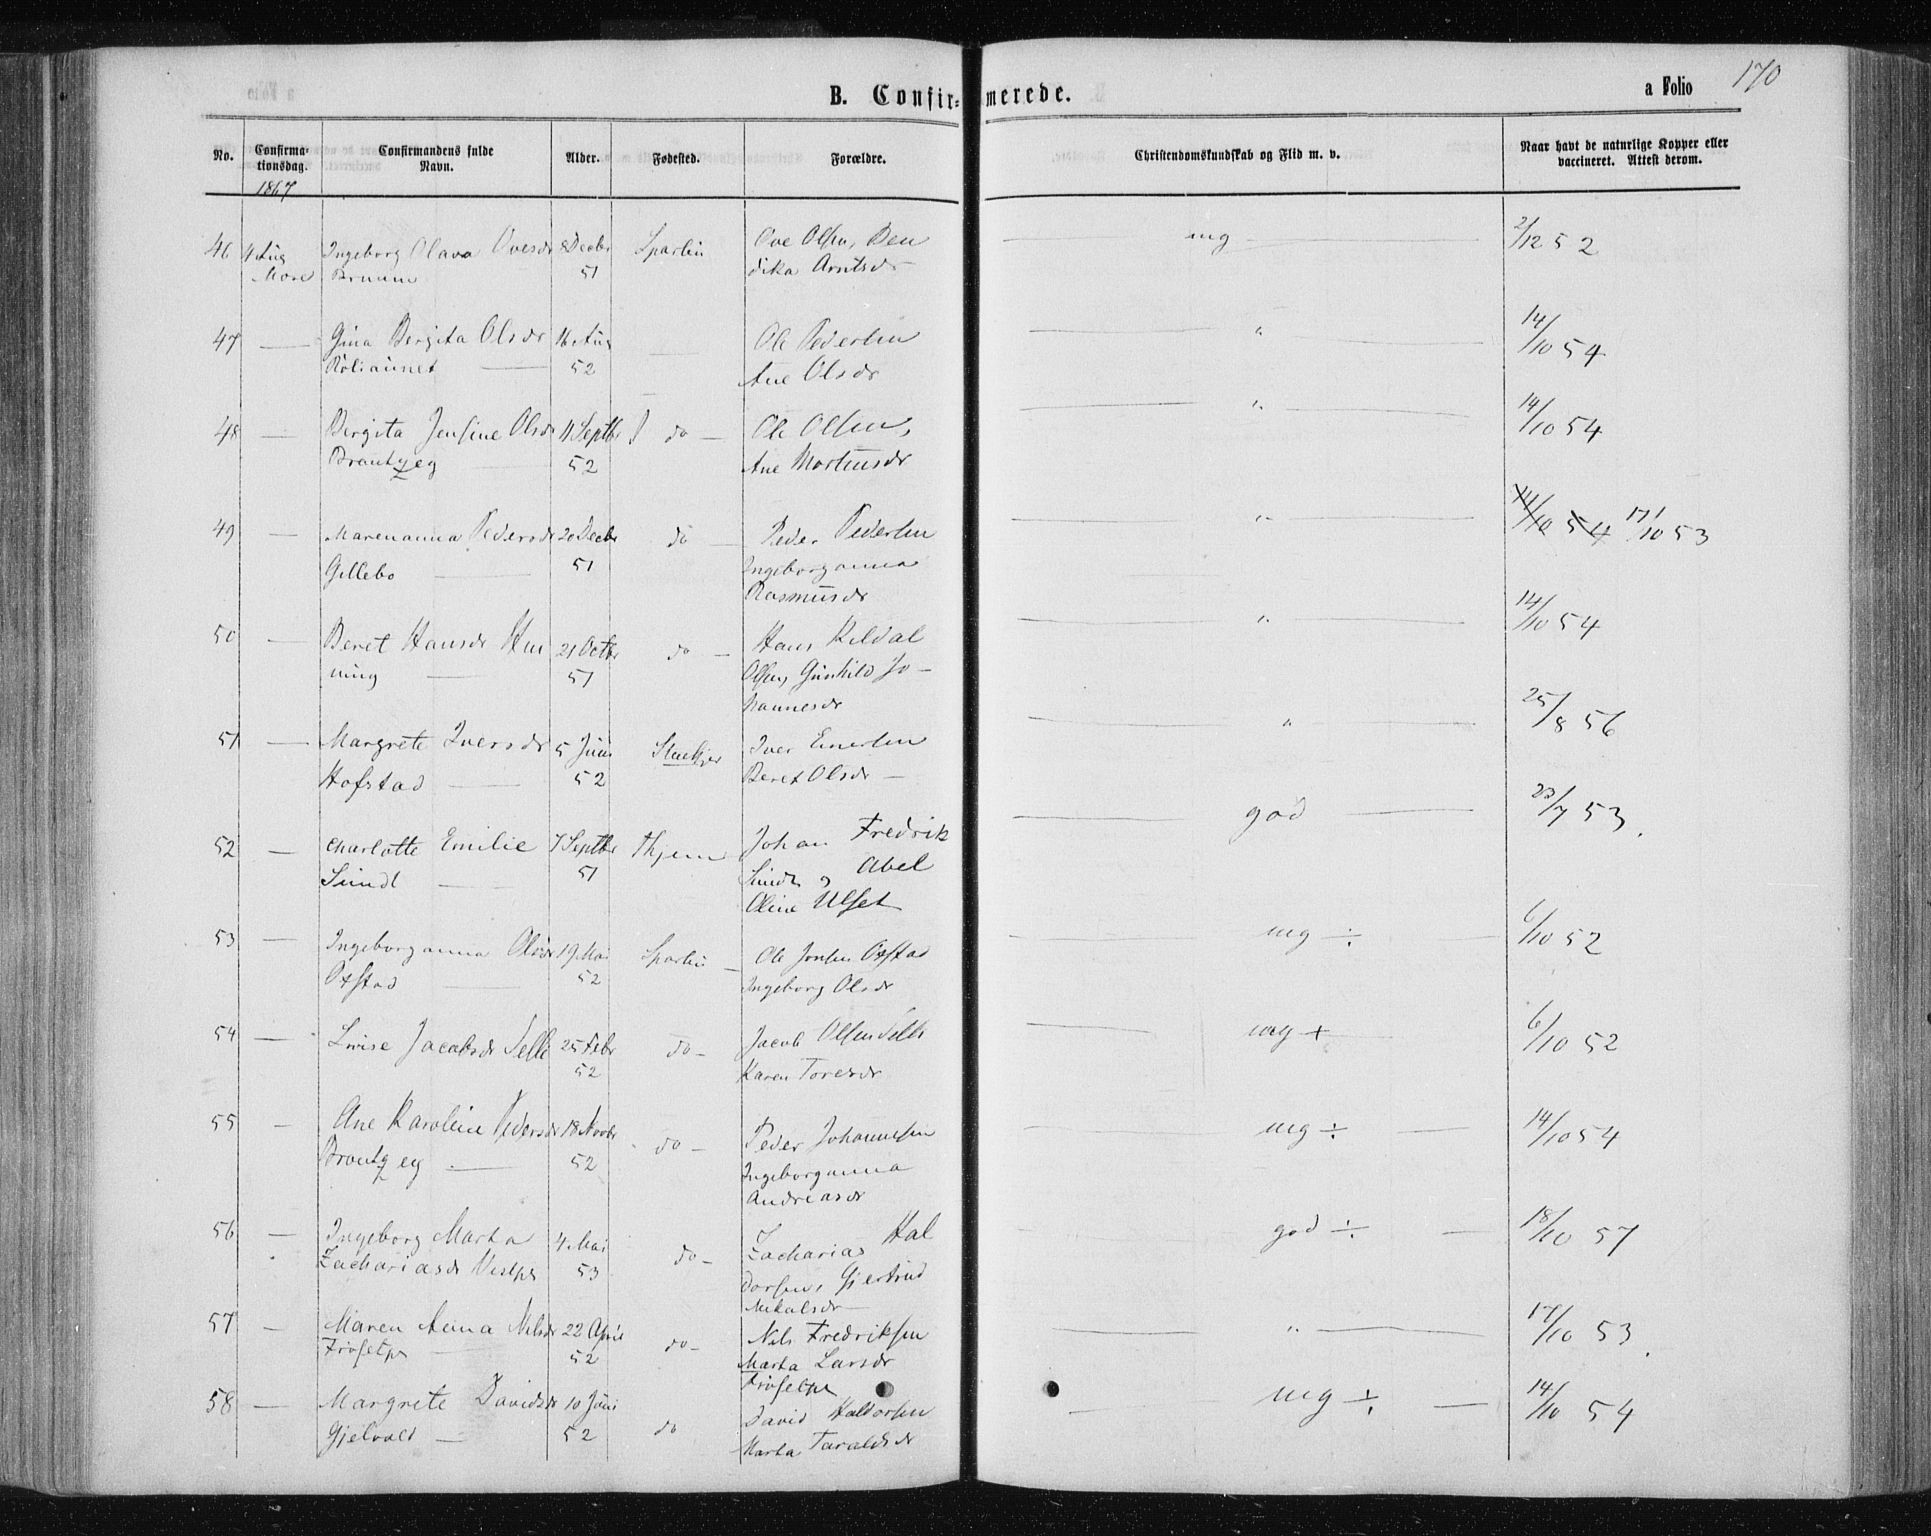 B. Confirmerede.
a Folio 170
No. Confirmationsdag. Confirmandens fulde Navn. Alder. Fødested. Forældre. Christendomskundskab og Flid m. v. Naar havt de naturlige Kopper eller vaccineret. Attest derom.
1867
46 4 Aug Ingeborg Olava Ovesdr 8 Decbr Sparbu Ove Olsen, Ben mg 2/12 52
51 dika Arntsdr
47 — Gina Bergita Olsdr 16 Aug — Ole Pedersen " 14/10 54
52 Ane Olsdr
48 — Bergita Jensine Olsdr 11 Septbr do — Ole Olsen, " 14/10 54
52 Ane Mortensdr
49 — Marenanna Pedersdr 20 Decbr do — Peder Pedersen " 14/10 54 17/10 53
Gillebo — 51 Ingeborganna
Rasmusdr
50 — Beret Hansdr Hen 21 Octbr do — Hans Kildal " 14/10 54
ning — 51 Olsen, Gunhild Jo-
hannesdr
51 — Margrete Iversdr 5 Juni Iver Enersen " 25/8 56
Hofstad — 52 Beret Olsdr —
52 — Charlotte Emilie 7 Septbr Johan Fredrik god 23/7 53.
Sundt — 51 Sundt og Abel
Oline Ulset
53 — Ingeborganna Olsdr 19 Mai Sparbu — Ole Jonsen Otstad mg ÷ 6/10 52
Otstad — 52 Ingeborg Olsdr
54 — Lovise Jacobsdr Selli 25 Febr do — Jacob Olsen Selli mg + 6/10 52
52 Karen Toresdr
55 — Ane Karoline Pedersdr 18 Novbr do — Peder Johannesen mg ÷ 14/10 54
52 Ingeborganna
Andreasdr
56 — Ingeborg Marta 4 Mai do — Zacharias Hal god ÷ 18/10 57
Zachariasdr 53 dorsen, Gjertrud
57 — Maren Anna Nilsdr 22 April do — Nils Fredriksen " 17/10 53.
52 Marta Larsdr
58 — Margrete Davidsdr 10 Juni do David Haldorsen mg ÷ 14/10 54
52 Marta Taraldsdr